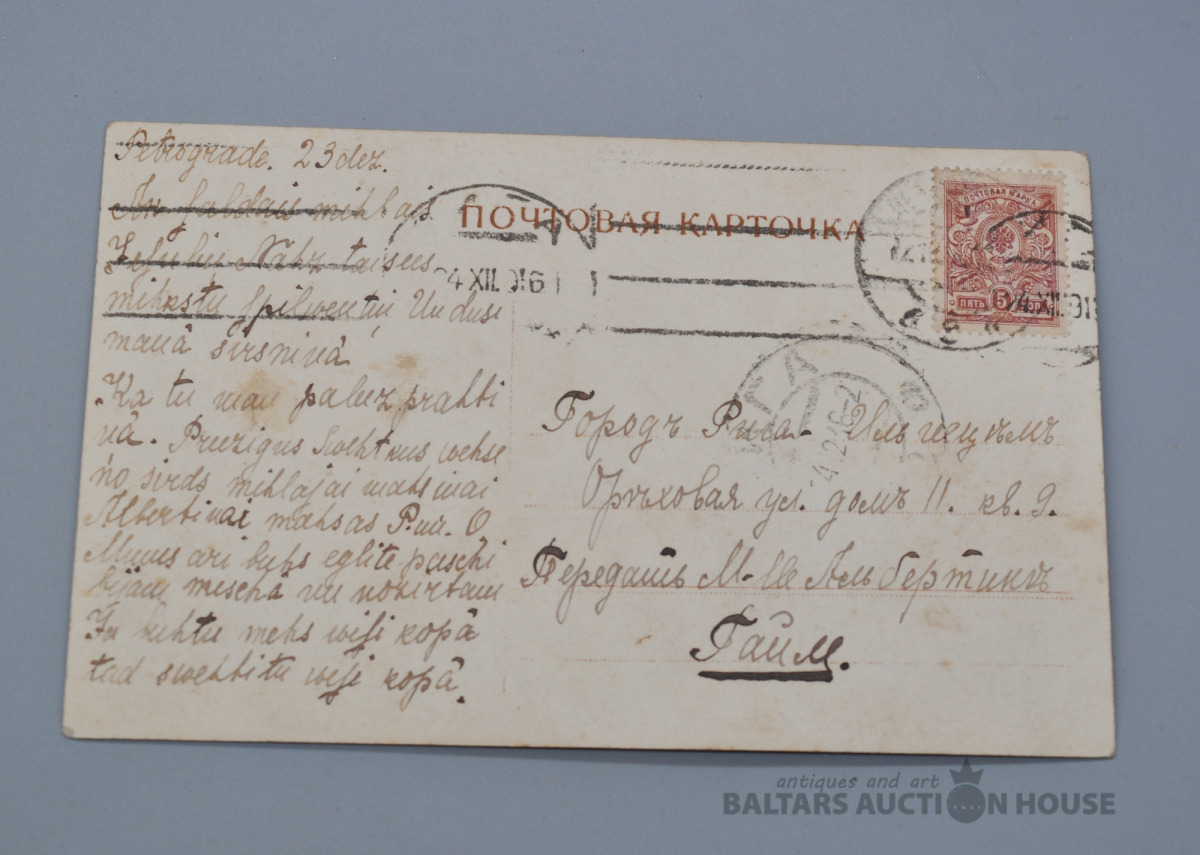 Petrograde. 23 dez.
Ak saldais mihlais
Jesuliu Nahz taisees
mihkstu spilwentiņ Un dusi
manâ sirsniņâ
Ka tu man paleez prahti
nâ. Preezigus Swehtkus wehle
no sirds mihlajai mahsinai
Albertinai mahsas P. un. O,
Mums ari buhs eglite paschi
bijam meschâ un nozirtam
Ja buhtu mehs wisi kopâ
tad swehtitu wisi kopâ.
ПОЧТОВАЯ КАРТОЧКА
24 XII. 916
ПОЧТОВАЯ МАРКА
ПЯТЬ 5
24 XII. 916
РИГА
Городъ Рига - Ильгецъемъ
Орѣховая ул. домъ 11. кв. 9.
Передать М-ме Альбертинѣ
Гайм.
antiques and art
BALTARS AUCTION HOUSE